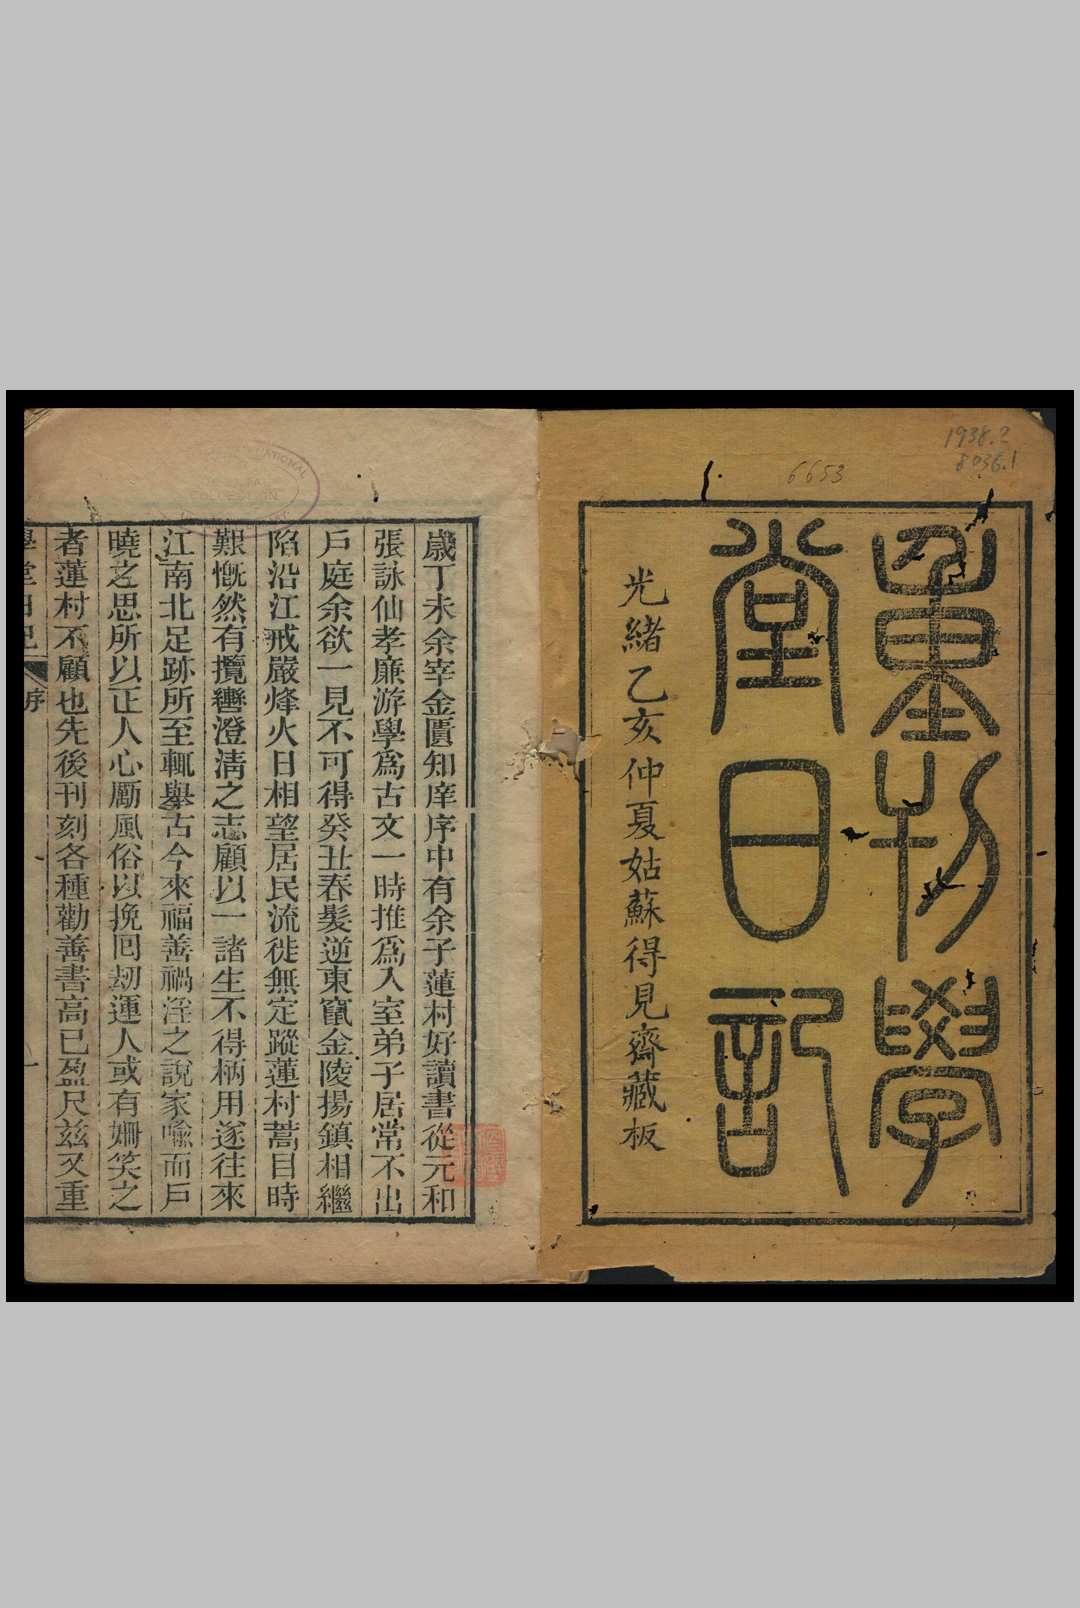 1938.2
8036.1
6653
重刊學
堂日記
光緒乙亥仲夏姑蘇得見齋藏板
歲丁未余宰金匱知庠序中有余子蓮村好讀書從元和
張詠仙孝廉游學爲古文一時推爲入室弟子居常不出
戶庭余欲一見不可得癸丑春髮逆東竄金陵揚鎮相繼
陷沿江戒嚴烽火日相望居民流徙無定蹤蓮村蒿目時
艱慨然有攬轡澄淸之志顧以一諸生不得柄用遂往來
江南北足跡所至輒舉古今來福善禍淫之說家喩而戶
曉之思所以正人心勵風俗以挽囘刼運人或有姍笑之
者蓮村不顧也先後刊刻各種勸善書高已盈尺茲又重
學堂日記
序
一